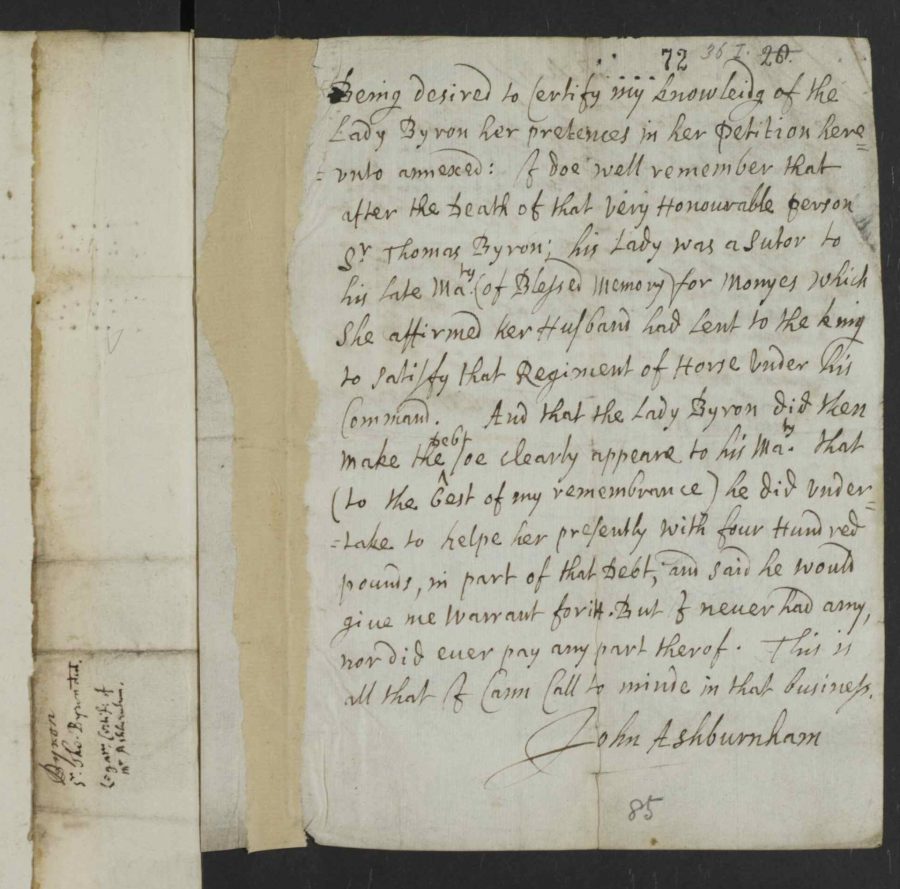 72 36 I. 20.
Being desired to Certify my knowleidg of the
Lady Byron her pretences in her Petition here=
=vnto annexed: I doe well remember that
after the Death of that Very Honourable person
Sr Thomas Byron; his Lady was a Sutor to
his late Maty (of Blessed Memory) for Monyes which
She affirmed her Husband had Lent to the king
to satisfy that Regiment of Horse Vnder his
Command. And that the Lady Byron did then
make the Debt soe clearly appeare to his Maty. that
(to the Best of my remembrance) he did vnder=
=take to helpe her presently with four Hundred
pounds, in part of that Debt, and said he would
giue me Warrant for itt. But I never had any,
nor did ever pay any part therof. This is
all that I Cann Call to minde in that business.
John Ashburnham
85
Byron
Sr Tho. Byron
Certif: of
Mr Ashburnham.